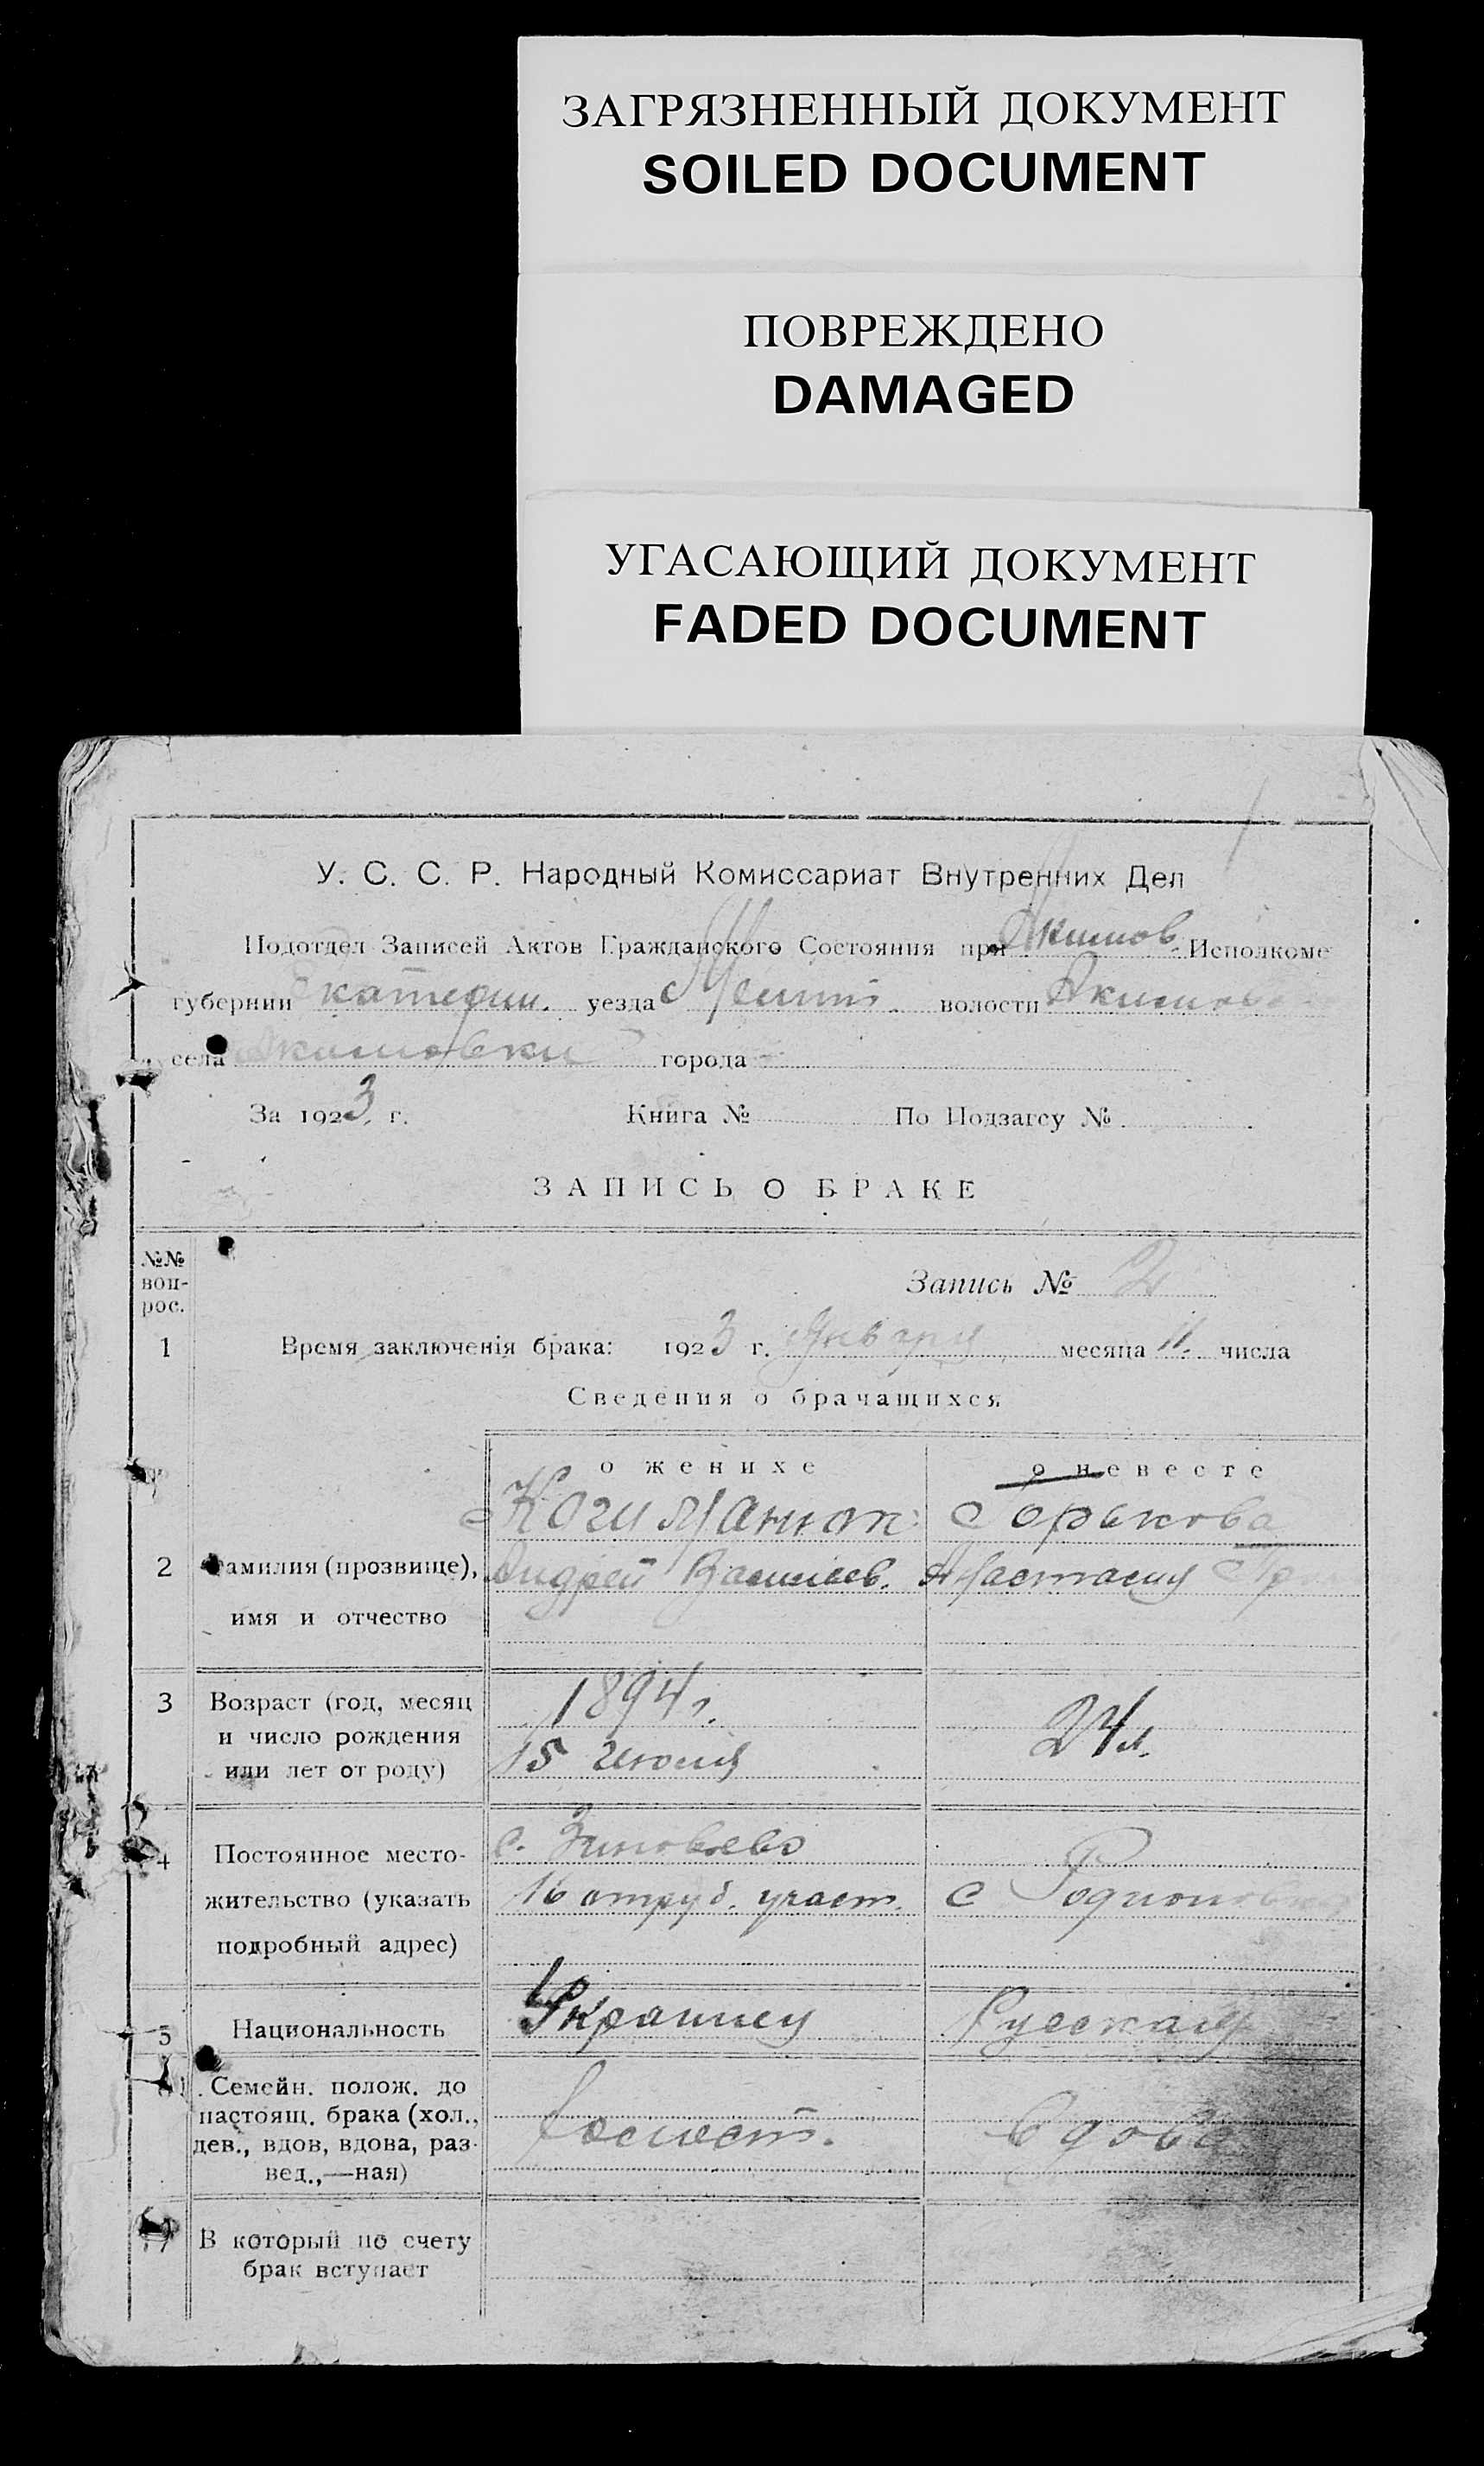 ЗАГРЯЗНЕННЫЙ ДОКУМЕНТ
SOILED DOCUMENT
ПОВРЕЖДЕНО
DAMAGED
УГАСАЮЩИЙ ДОКУМЕНТ
FADED DOCUMENT
У. С. С. Р. Народный Комиссариат Внутренних Дел
Подотдел Записей Актов Гражданского Состояния при Акимов. Исполкоме
губернии Екатерин. уезда Мелит. волости Акимов
села Акимовки города
За 1923 г. Книга № По Подзагсу №
ЗАПИСЬ О БРАКЕ
№№ воп-рос.
Запись № 2
1 Время заключенія брака: 1923 г. Января месяца 11. числа
Сведения о брачащихся
о женихе о невесте
Горькова
2 Фамилия (прозвище), Андрей Васильев. Анастасия
имя и отчество
3 Возраст (год, месяц 1894 г.
и число рождения 24 л.
или лет от роду) 15 июля
с. Зиновьево
4 Постоянное место-
жительство (указать 16 отруб. участ. с
подробный адрес)
5 Национальность Украинец Русская
6 Семейн. полож. до
настоящ. брака (хол., Холост. вдова
дев., вдов, вдова, раз-
вед.,—ная)
7 В который по счету
брак вступает